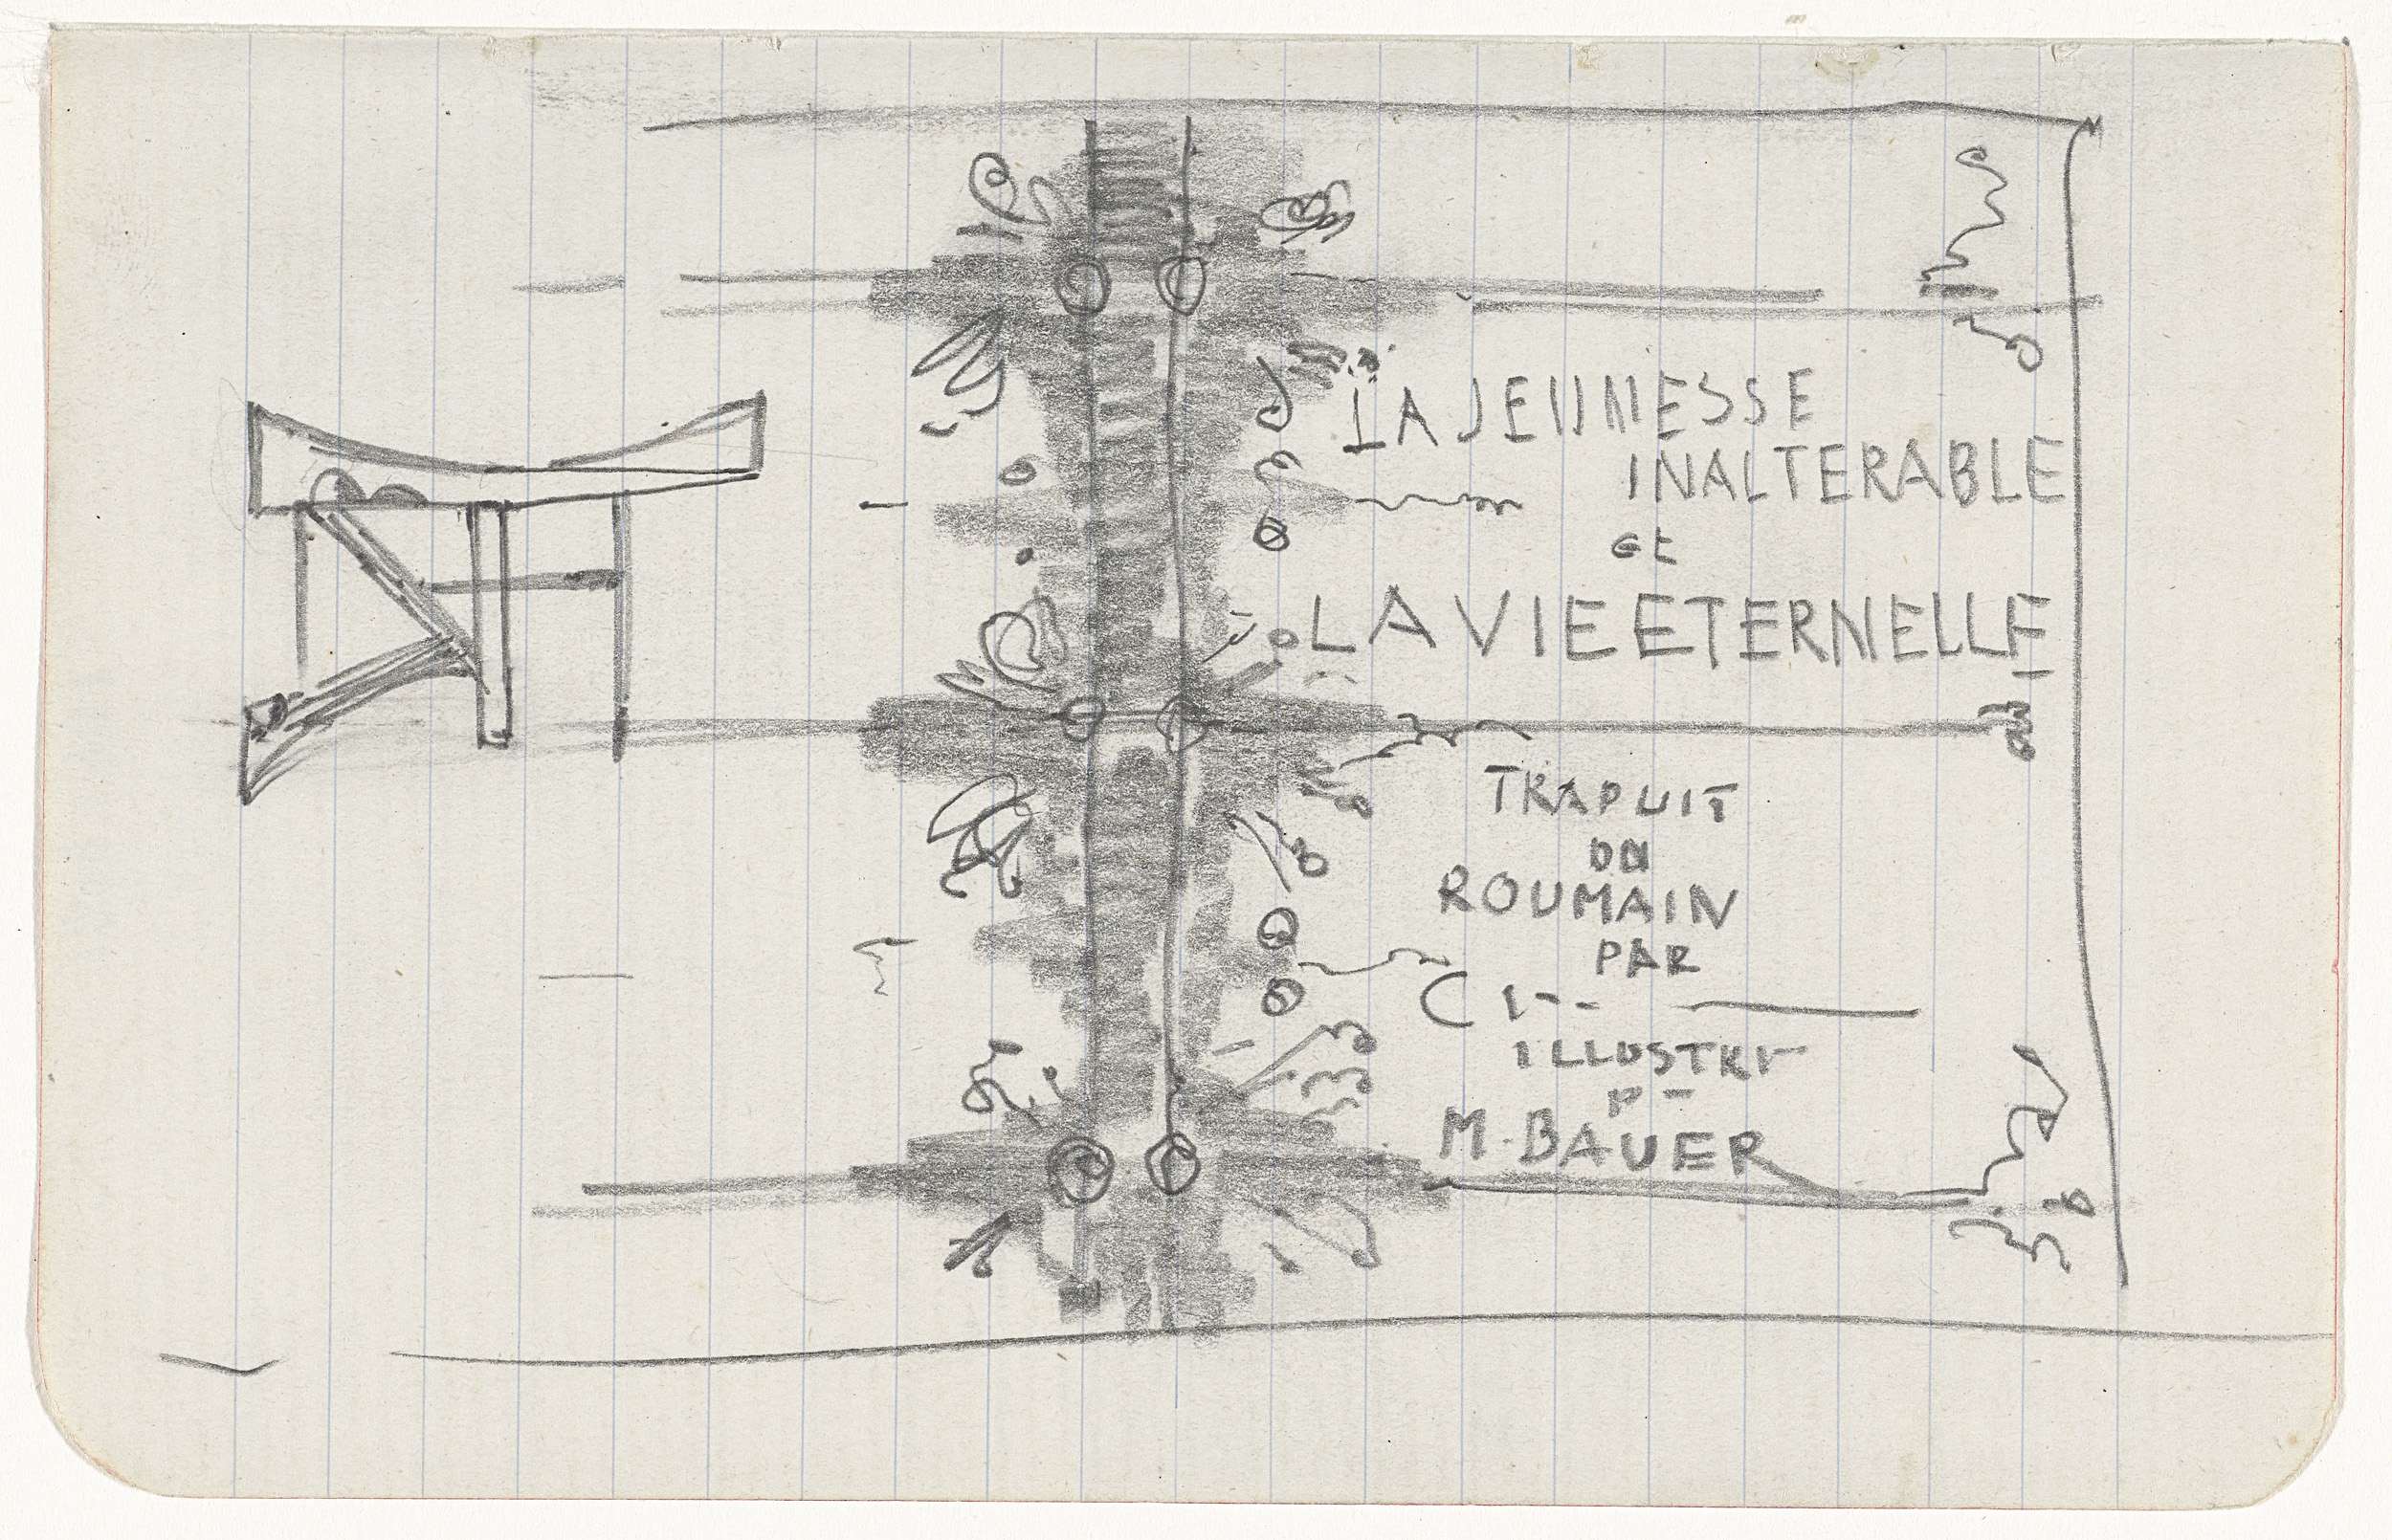 LA JEUNESSE
INALTERABLE
et
LA VIE ETERNELLE
TRADUIT
DU
ROUMAIN
PAR
ILLUSTRE
M. BAUER